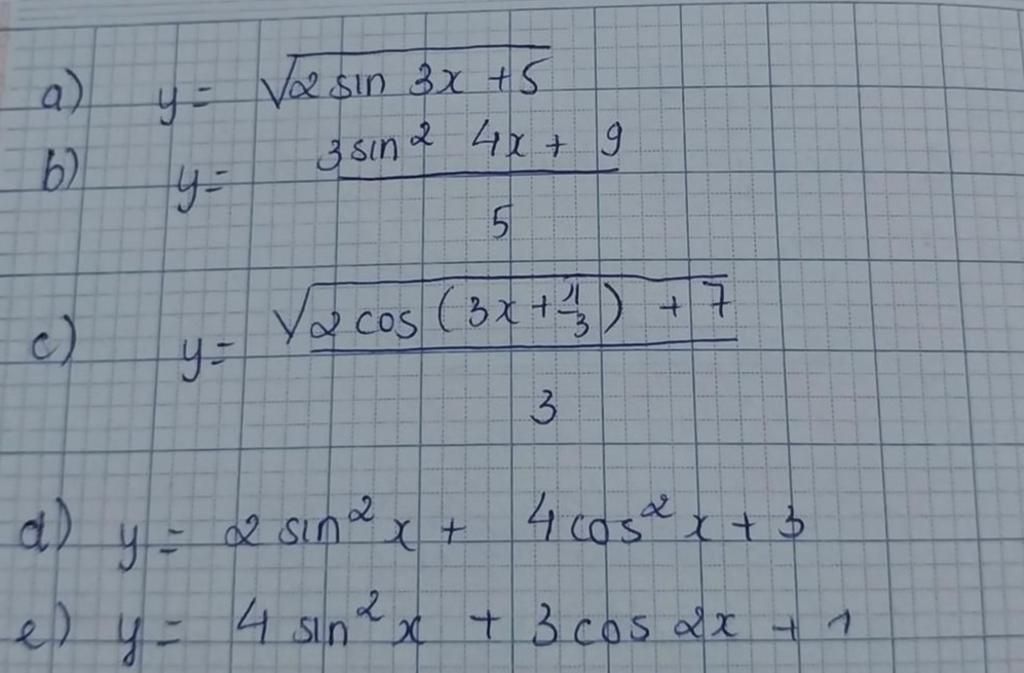 a) y = √(2 sin 3x + 5)
b) y = (3 sin² 4x + 9) / 5
c) y = √(2 cos (3x + π/3) + 7) / 3
d) y = 2 sin² x + 4 cos² x + 3
e) y = 4 sin² x + 3 cos 2x + 1